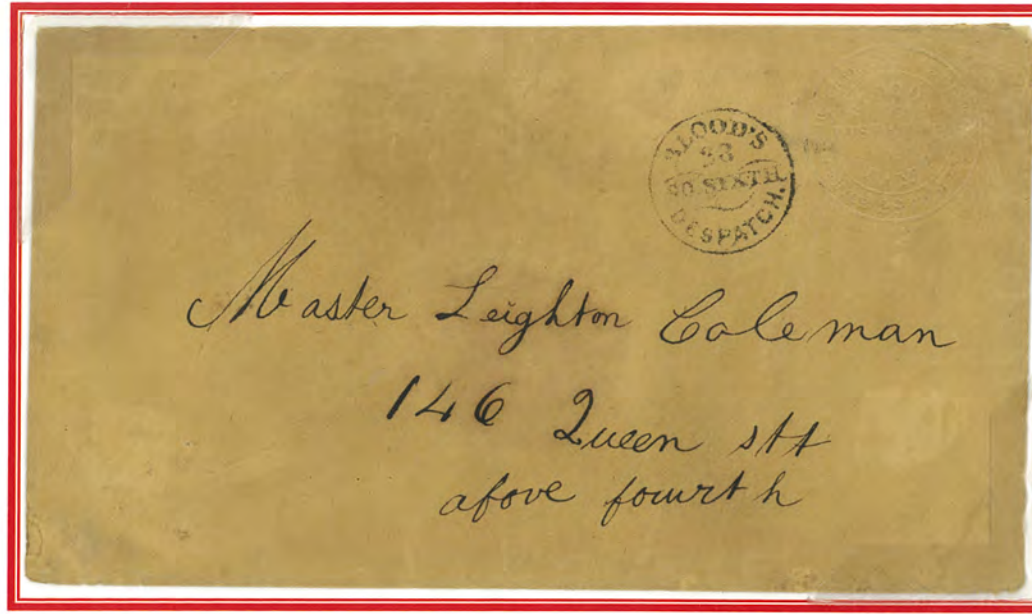 BLOOD'S
28
SO. SIXTH
DESPATCH.
Master Leighton Coleman
146 Queen stt
afove fowrth